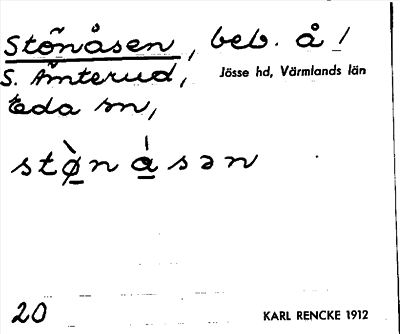 Stönåsen, beb. å /
S. Ämterud, Jösse hd, Värmlands län
Eda sn,
stø̀n ásən
20 KARL RENCKE 1912